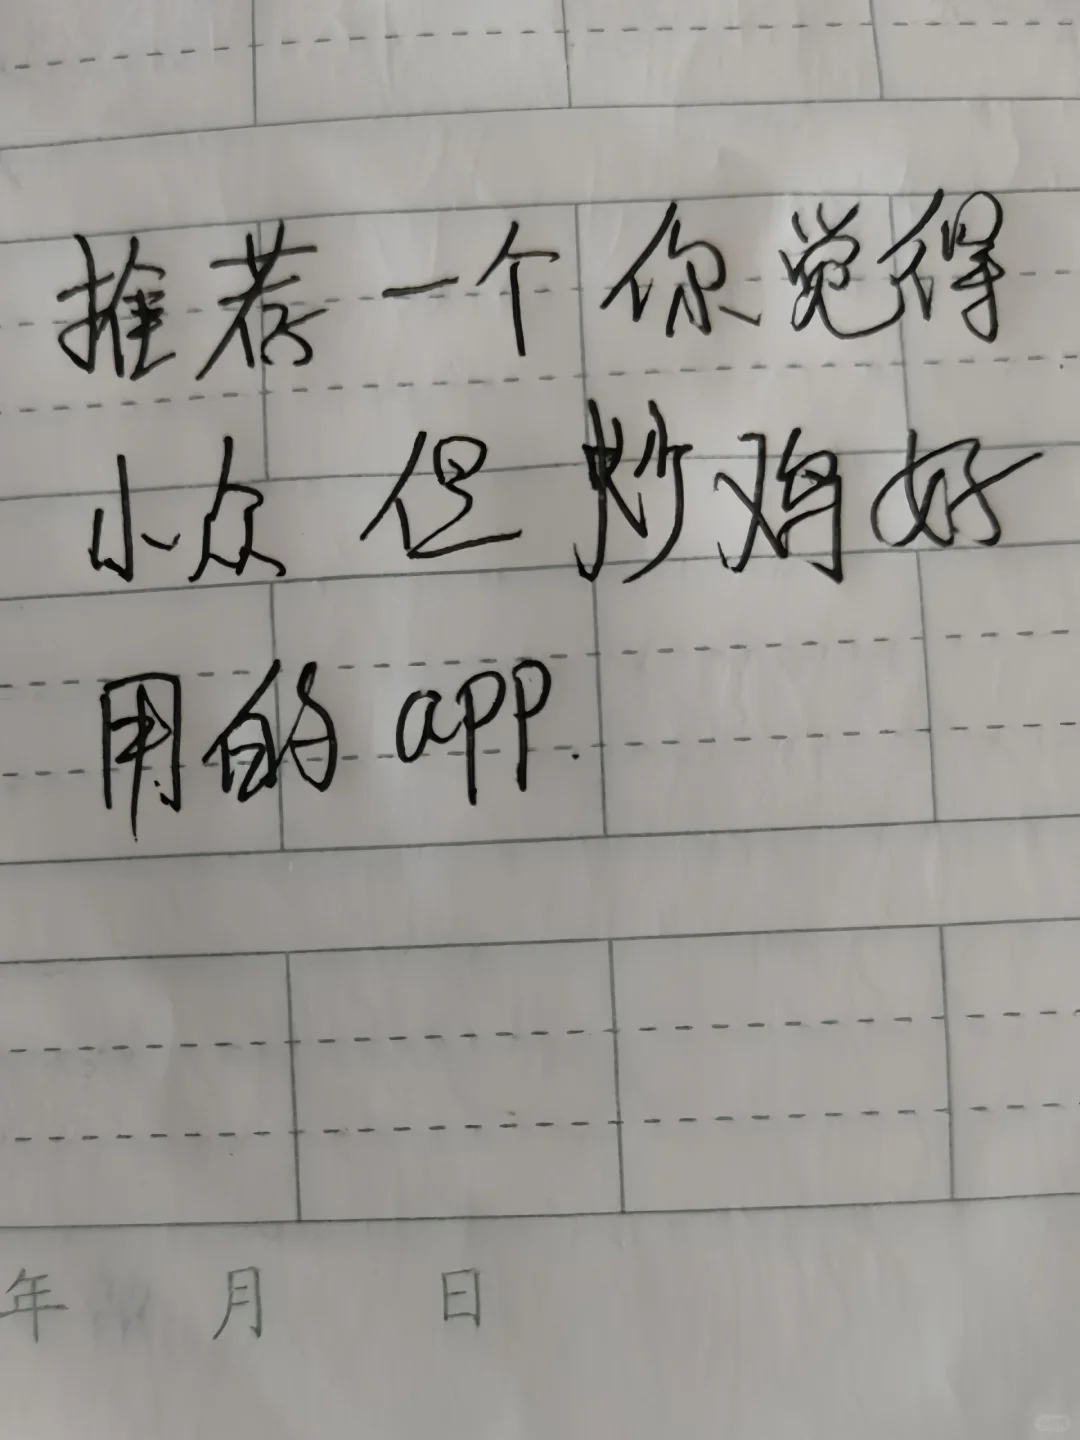 推荐一个你觉得
小众但炒鸡好
用的app.
年 月 日